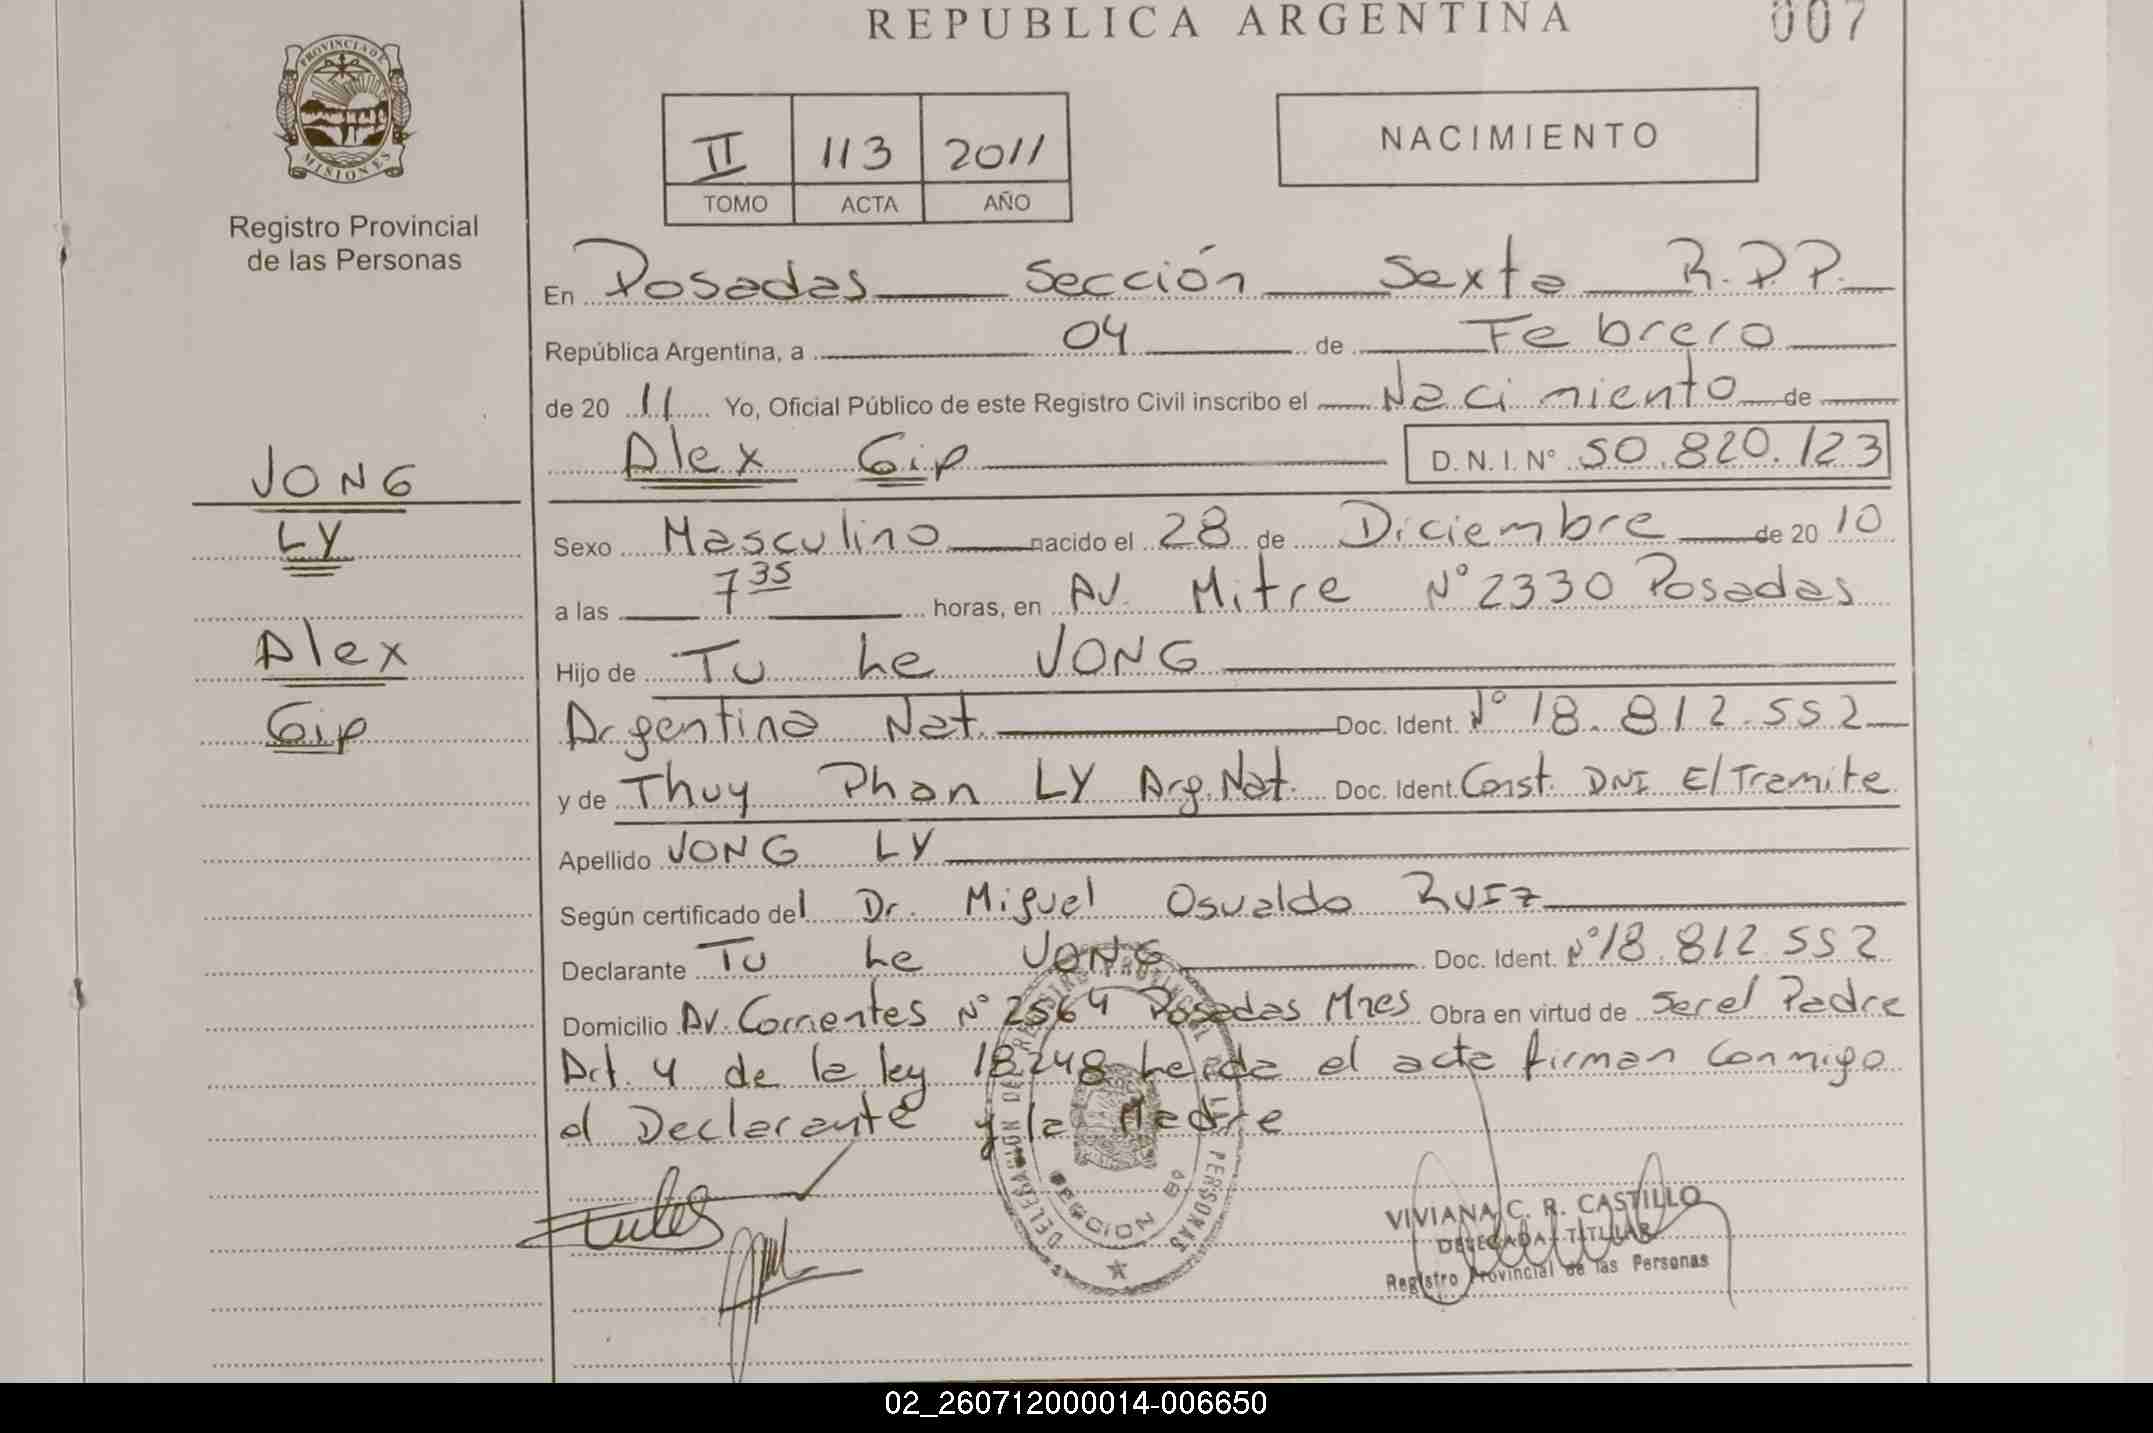 REPUBLICA ARGENTINA
007
PROVINCIA DE
MISIONES
Registro Provincial
de las Personas
II 113 2011
TOMO ACTA AÑO
NACIMIENTO
En Posadas Sección Sexta R.P.P.
República Argentina, a 04 de Febrero
de 2011 Yo, Oficial Público de este Registro Civil inscribo el Nacimiento de
Alex Gip D.N.I. N° 50.820.123
JONG
LY
Alex
Gip
Sexo Masculino nacido el 28 de Diciembre de 2010
a las 7 35 horas, en Av. Mitre N° 2330 Posadas
Hijo de Tu Le JONG
Argentina Nat. Doc. Ident. N° 18.812.552
y de Thuy Phan LY Arg. Nat. Doc. Ident. Const. DNI E/Tramite
Apellido JONG LY
Según certificado del Dr. Miguel Osvaldo RUIZ
Declarante Tu Le JONG Doc. Ident. N° 18.812.552
Domicilio Av. Corrientes N° 2564 Posadas Mnes Obra en virtud de Ser el Padre
Art. 4 de la ley 18248 Leida el acta firman conmigo
el Declarante y la Madre
DELEGACIÓN DEL REGISTRO PROVINCIAL DE LAS PERSONAS
SECCION 6a
VIVIANA C. R. CASTILLO
DELEGADA TITULAR
Registro Provincial de las Personas
02_260712000014-006650